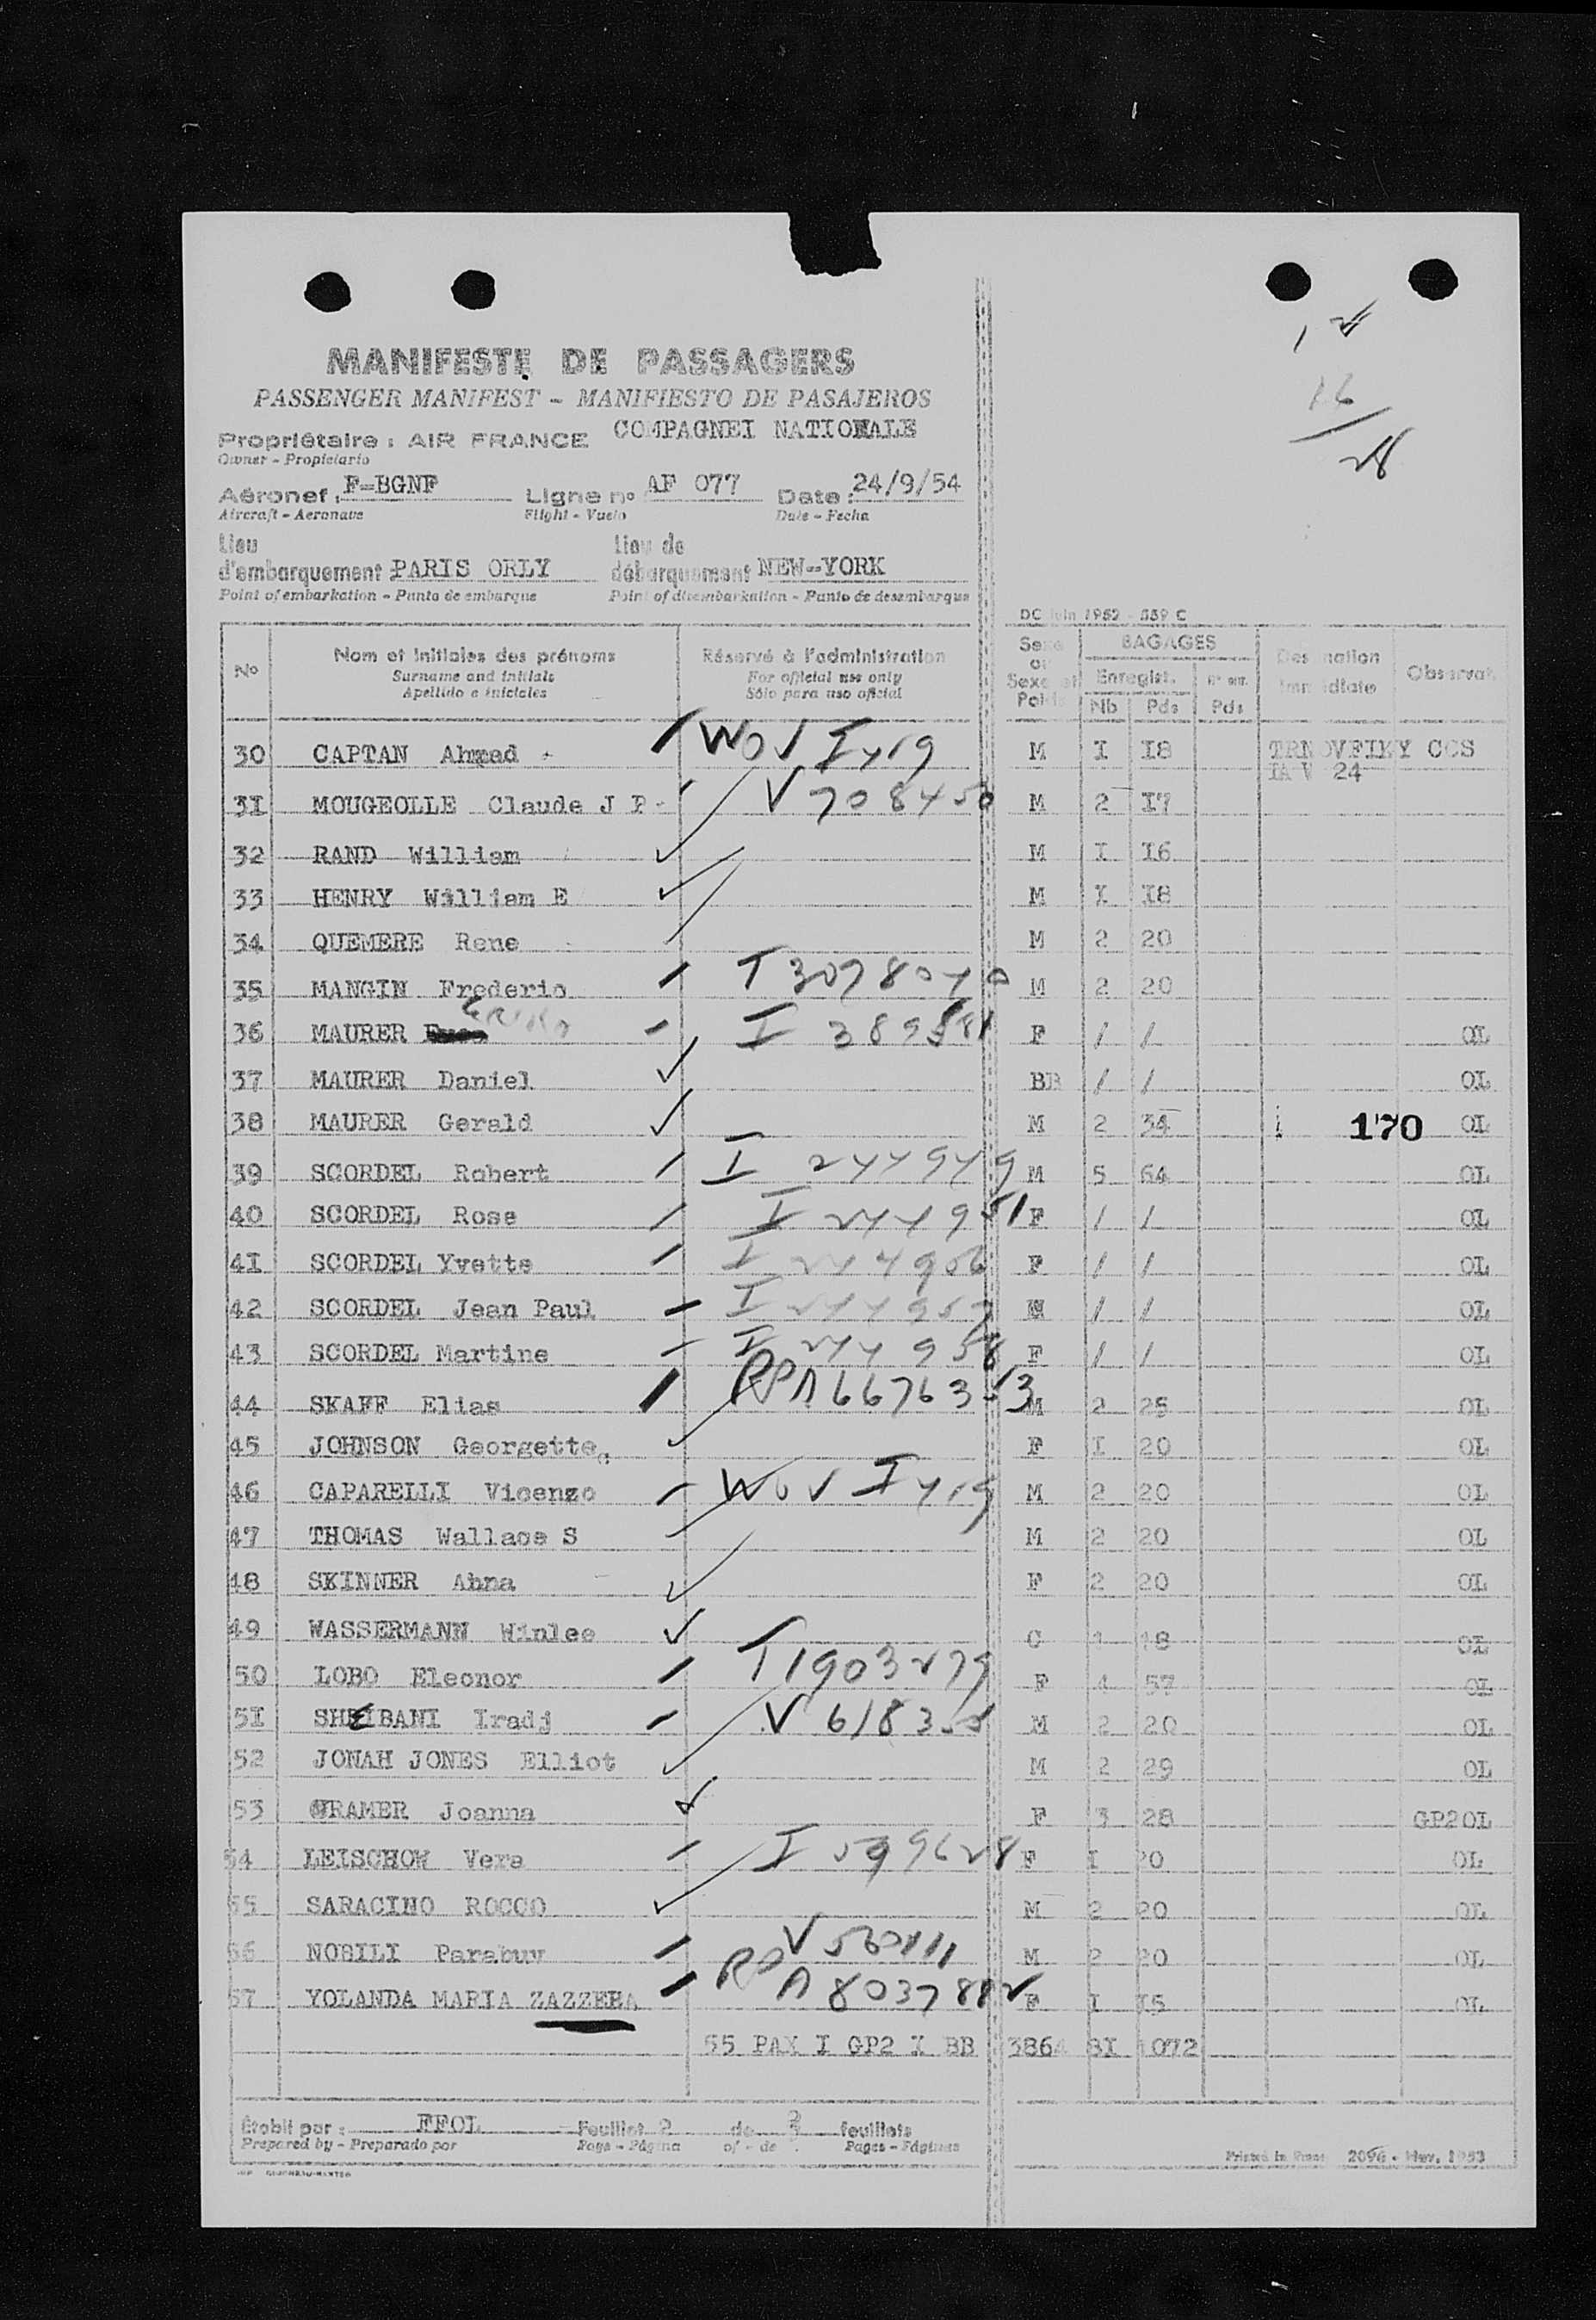 MANIFESTE DE PASSAGERS
PASSENGER MANIFEST - MANIFIESTO DE PASAJEROS
Propriétaire : AIR FRANCE COMPAGNEI NATIONALE
Owner - Propietario
Aéronef : F-BGNF Ligne no AF 077 Date : 24/9/54
Aircraft - Aeronave Flight - Vuelo Date - Fecha
Lieu Lieu de
d'embarquement PARIS ORLY débarquement NEW-YORK
Point of embarkation - Punto de embarque Point of disembarkation - Punto de desembarque
16
28
DC 1952 - 339 C
No Nom et initiales des prénoms Réservé à l'administration Sexe BAGAGES Destination Observat.
Surname and initials For official use only ou Enregist. immédiate
Apellido e iniciales Sólo para uso oficial Sexe et Poids Nb Pds Pds
30 CAPTAN Ahmad WOV I419 M I I8 CCS
24
3I MOUGEOLLE Claude J P V 708450 M 2 I7
32 RAND William M I I6
33 HENRY William E M I I8
34 QUEMERE Rene M 2 20
35 MANGIN Frederic T 3078040 M 2 20
36 MAURER I 389581 F / / OL
37 MAURER Daniel BB / / OL
38 MAURER Gerald M 2 34 170 OL
39 SCORDEL Robert I 244949 M 5 64 OL
40 SCORDEL Rose I 244951 F / / OL
4I SCORDEL Yvette I 244956 F / / OL
42 SCORDEL Jean Paul I 244957 M / / OL
43 SCORDEL Martine I 244958 F / / OL
44 SKAFF Elias RP A6676353 M 2 25 OL
45 JOHNSON Georgette F I 20 OL
46 CAPARELLI Vicenzo WOV I419 M 2 20 OL
47 THOMAS Wallace S M 2 20 OL
48 SKINNER Ahna F 2 20 OL
49 WASSERMANN Winlee C 1 18 OL
50 LOBO Eleonor T1903279 F 4 57 OL
5I SHEIBANI Iradj V 618355 M 2 20 OL
52 JONAH JONES Elliot M 2 29 OL
53 CRAMER Joanna F 3 28 GP2OL
54 LEISCHOW Vera I 599628 F I 20 OL
55 SARACINO ROCCO M 2 20 OL
56 NOBILI Parabuv V 560111 M 2 20 OL
57 YOLANDA MARIA ZAZZERA RP A 8037882 F I I5 OL
55 PAX I GP2 I BB 3864 8I 1072
Etabli par : FFOL Feuillet 2 de 2 feuillets
Prepared by - Preparado por Page - Página of - de Pages - Páginas
Printed in France 2096 - Nov. 1953